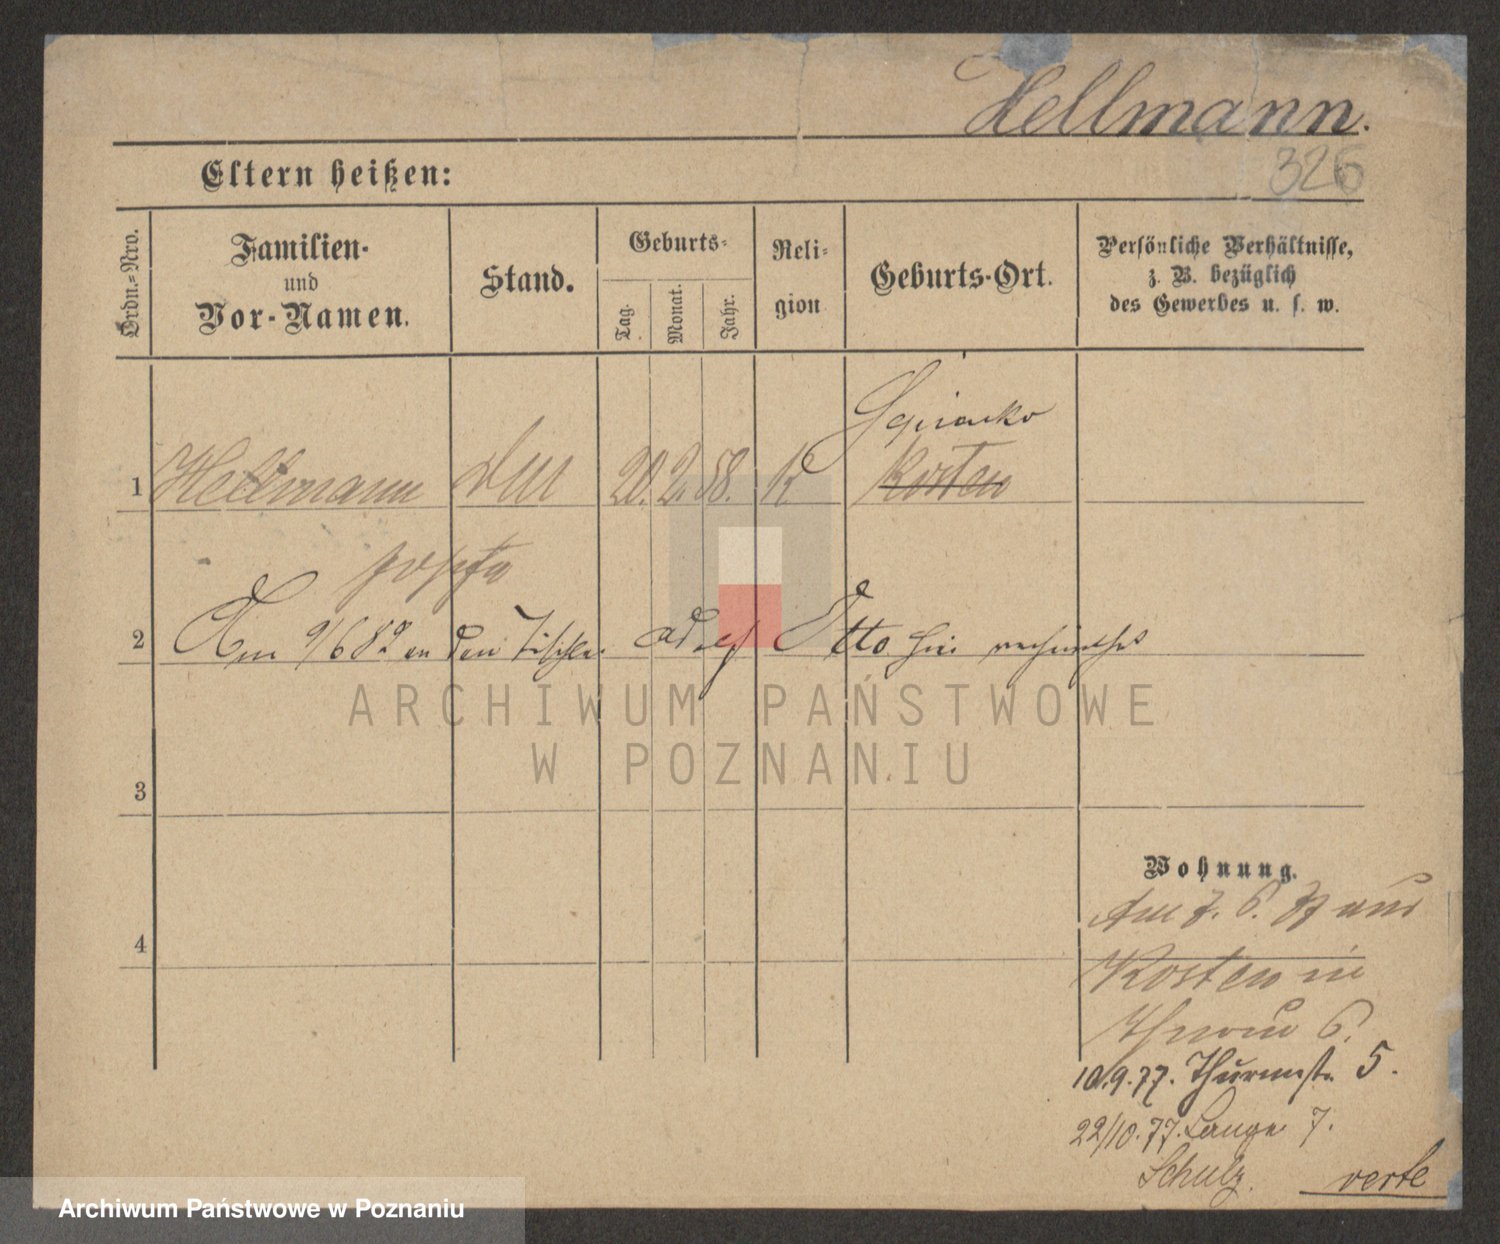 Hellmann.
326
Eltern heißen:
Ordn.-Nro.
Familien-
und
Vor-Namen.
Stand.
Geburts-
Tag.
Monat.
Jahr.
Reli-
gion
Geburts-Ort.
Persönliche Verhältnisse,
z. B. bezüglich
des Gewerbes u. s. w.
1 Hellmann 20. 2. 58. K Kosten
2 Am 9/6 82 an den Tischler Adolf Otto hier
ARCHIWUM PAŃSTWOWE
W POZNANIU
3
Wohnung.
4
Am 7. 6. 77 aus
Kosten in
6.
10.9.77. Thurmstr. 5.
22/10.77. Lange 7.
Schulz.
verte
Archiwum Państwowe w Poznaniu